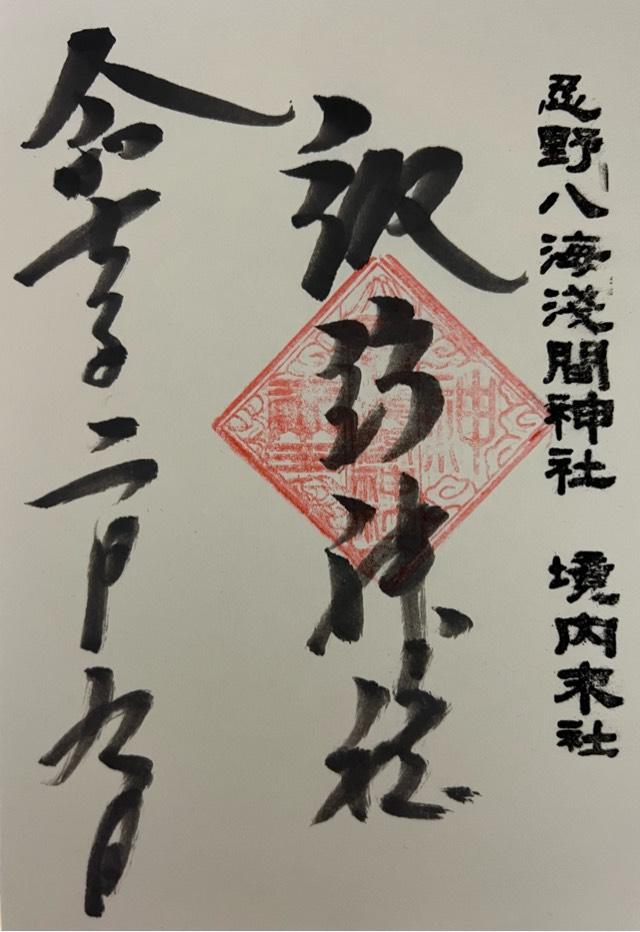 忍野八海淺間神社　境内末社
諏訪
令和七年二月九日